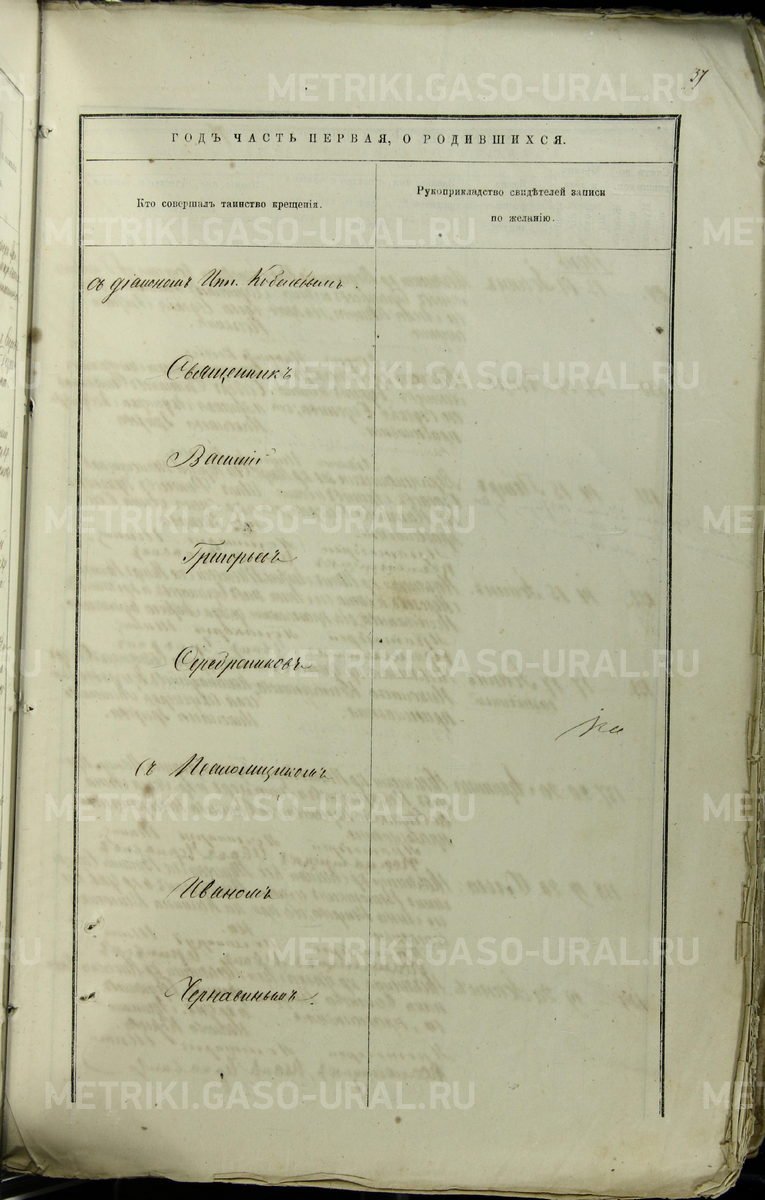 37
ГОДЪ ЧАСТЬ ПЕРВАЯ, О РОДИВШИХСЯ.
Кто совершалъ таинство крещенія.
Рукоприкладство свидѣтелей записи
по желанію.
съ діакономъ Ипп.
Священникъ
Василій
Григорьевъ
Серебрениковъ
Съ Псаломщикомъ
Иваномъ
METRIKI.GASO-URAL.RU